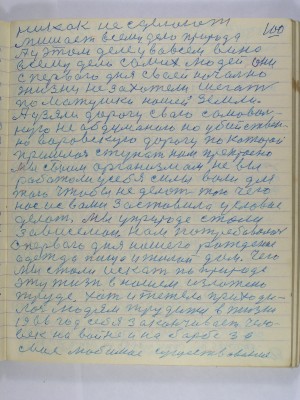 никак не сделают
мешает всему дело природа
А у этом деле у во всем вина
всему дела самих людей они
с первого дня своей начально
жизни не захотели шагать
по матушки нашей земли.
А узяли дорогу свою самоволь
ную не обдуманою но убийствен
но воровскую дорогу по которой
пришлося ступат нам
Мы своим организмам не вы
работали у себя силы воли для
того чтобы не делат того чего
нас с вами заставило условие
делат. Мы у природе стали
зависемои нам потребовался
с первого дня нашего рождения
одежда пища и жилой дом. Чего
мы стали искат по природе
эту жизн в нашем изложено
труде. хот и тежело приходи
лос людям трудится в жизни
1966 год себя заканчивает чело
век на войне и на борбе за
свое любимое существование
100